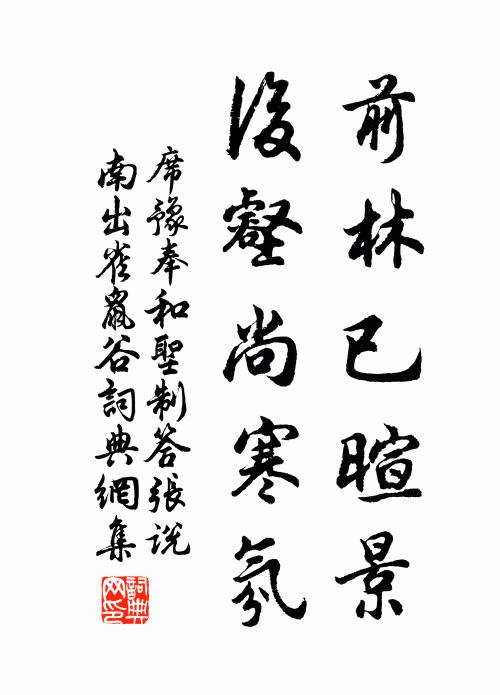 前林已暄景
後壑尚寒氛
席豫奉和聖制答張说
南出雀鼠谷詞典網集